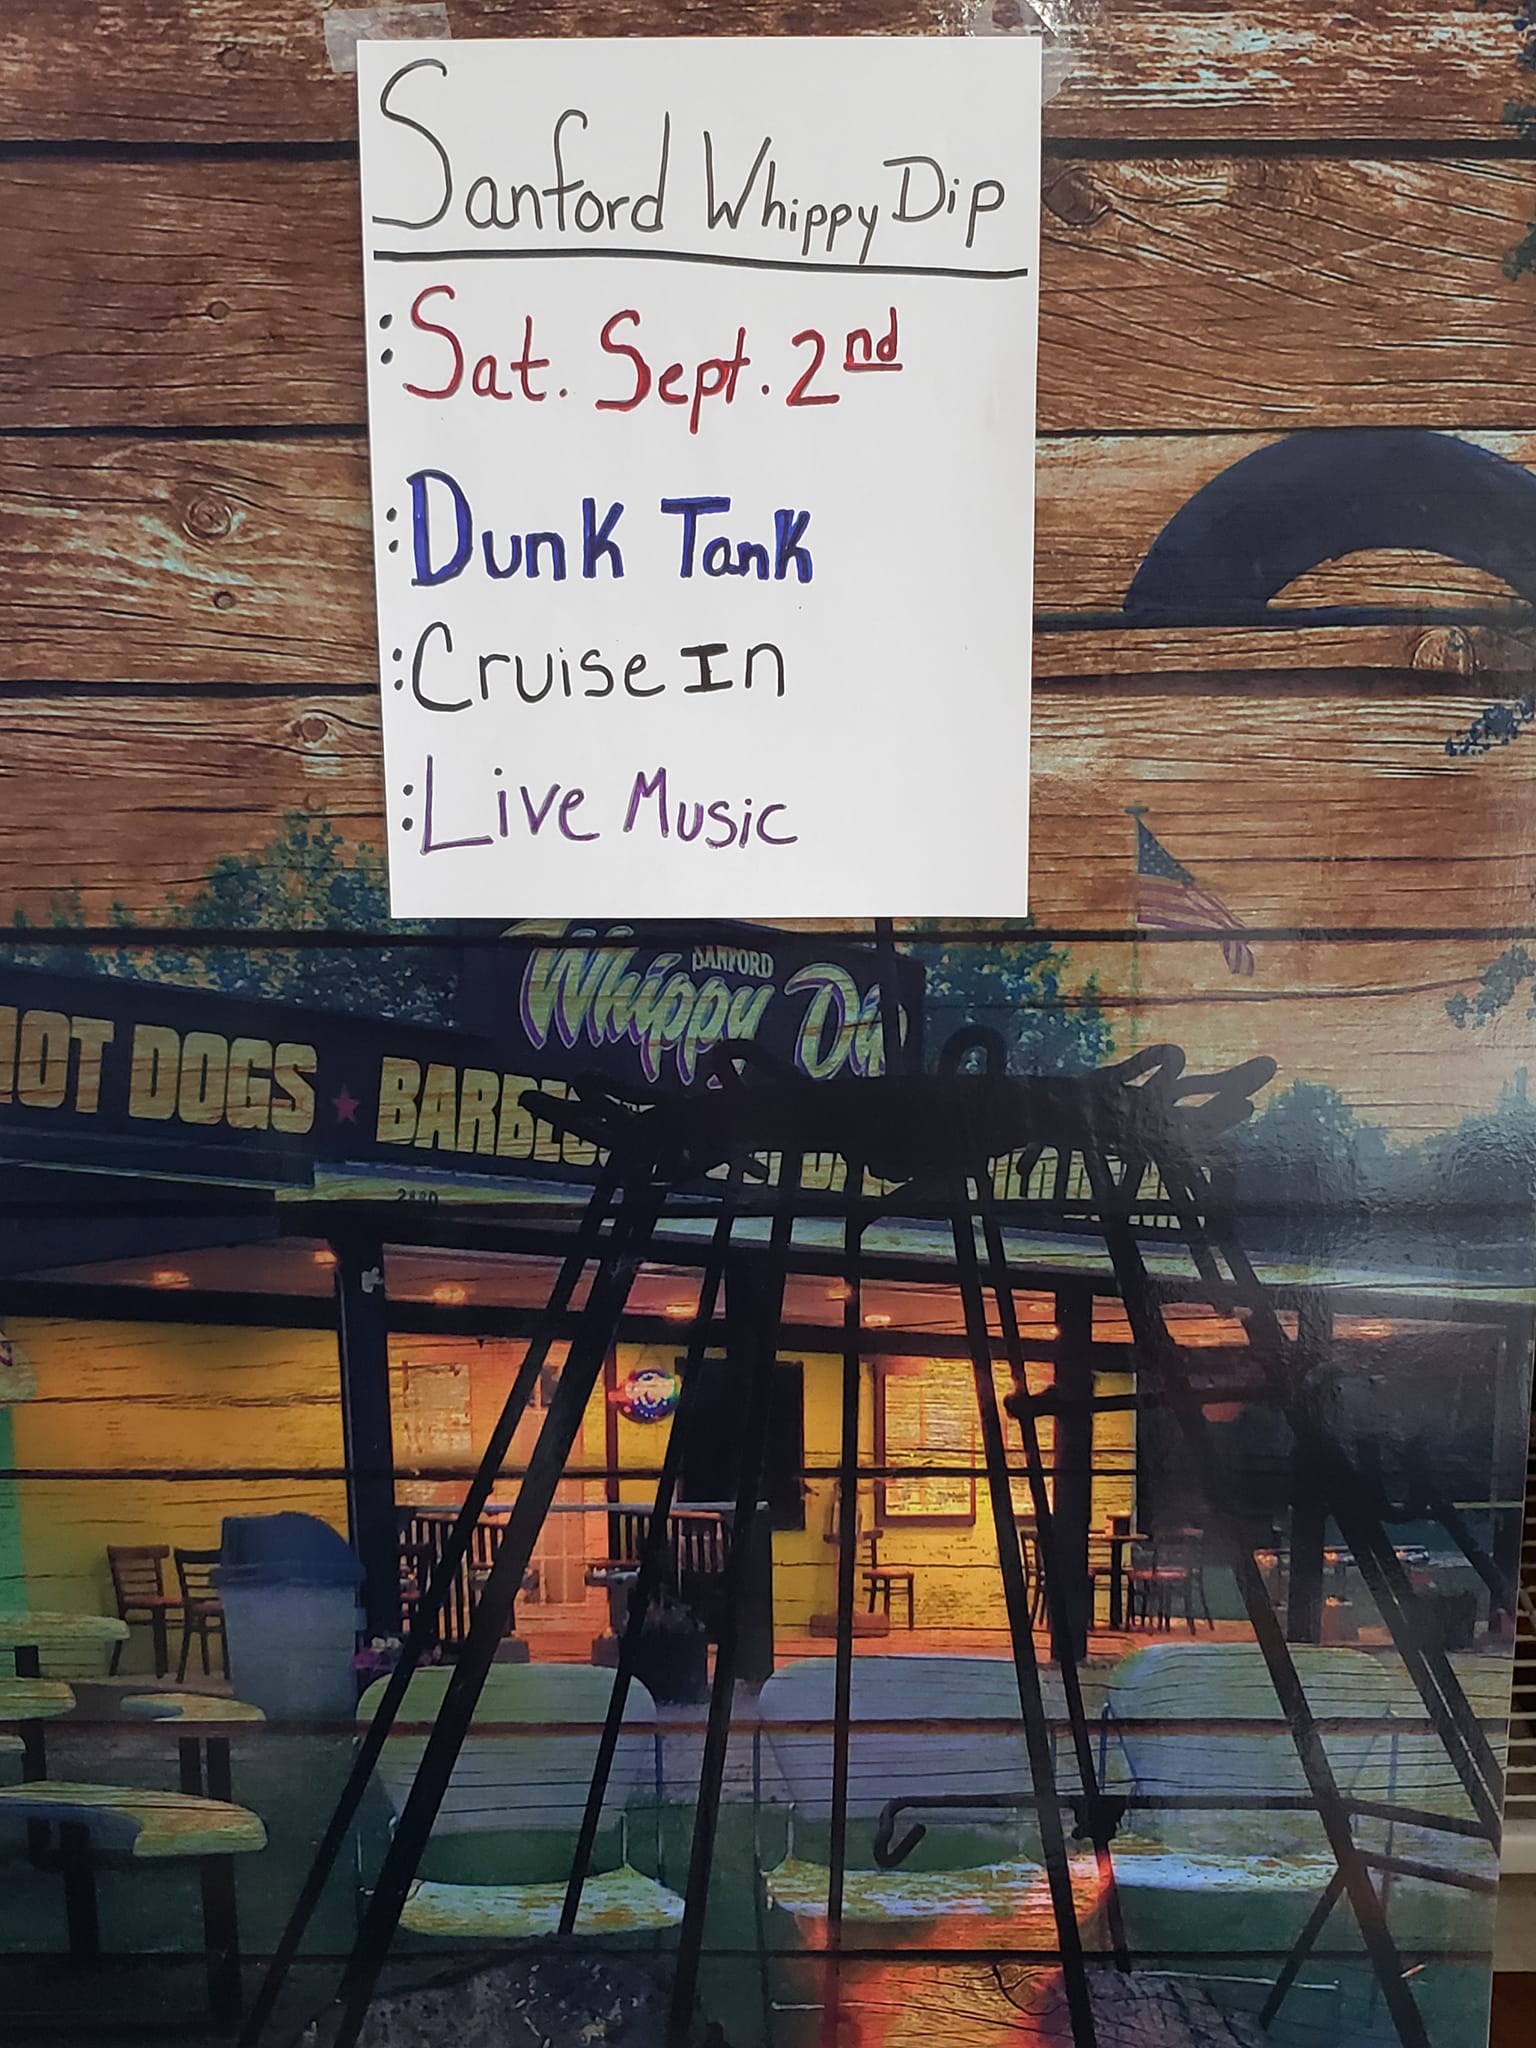 Sanford Whippy Dip
: Sat. Sept. 2nd
: Dunk Tank
: Cruise In
: Live Music
SANFORD
Whippy Dip
HOT DOGS ★ BARBECUE
2880